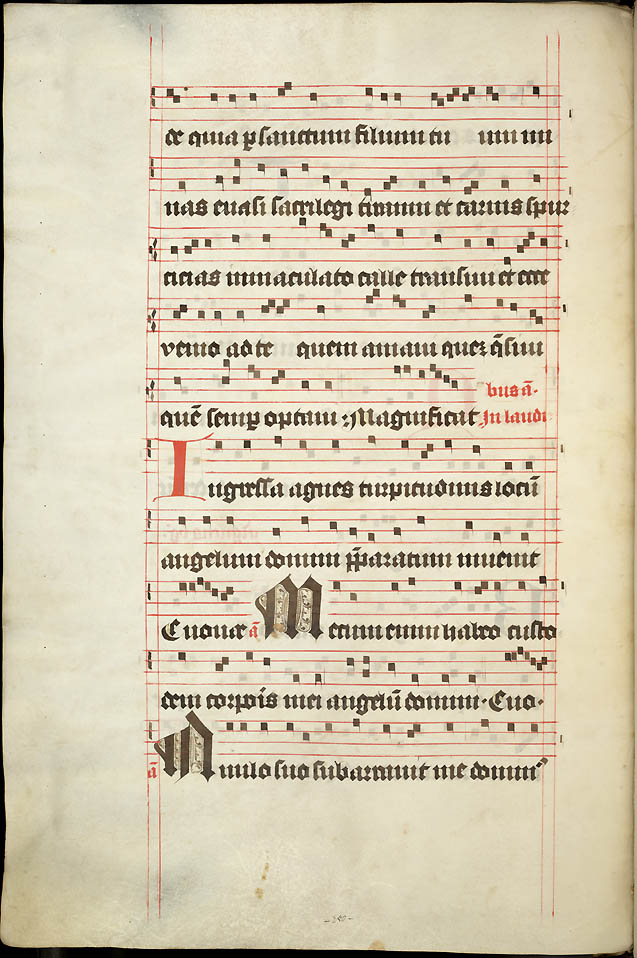 te quia p sanctum filium tu um mi
nas euasi sacrilegi tiranni et carnis spur
cicias immaculato calle transiui et ecce
venio ad te quem amaui quez q̄siui
quē semp optaui : Magnificat
bus ā.
In laudi
Ingressa agnes turpitudinis locū
angelum domini p̄paratum inuenit
Euouae ā Mecum enim habeo custo
dem corporis mei angelū domini · Euo ·
ā Annulo suo subarrauit me domin⁹